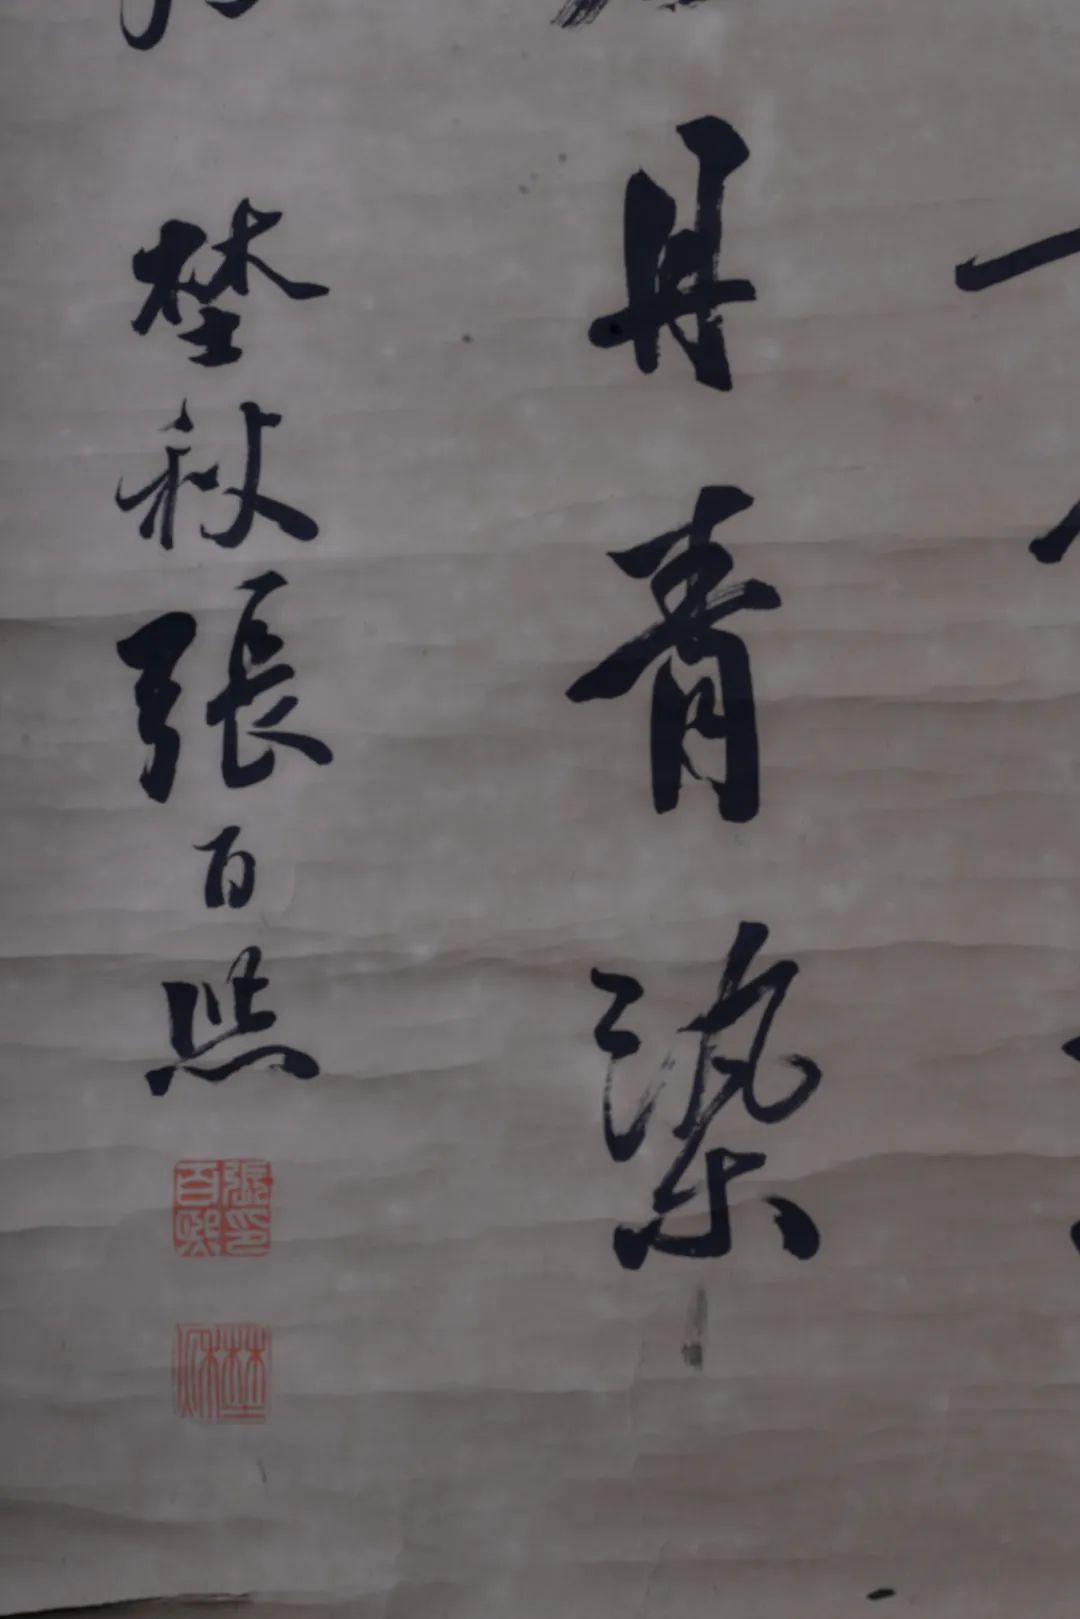 丹青染
埜秋張百熙
張百熙印
埜秋